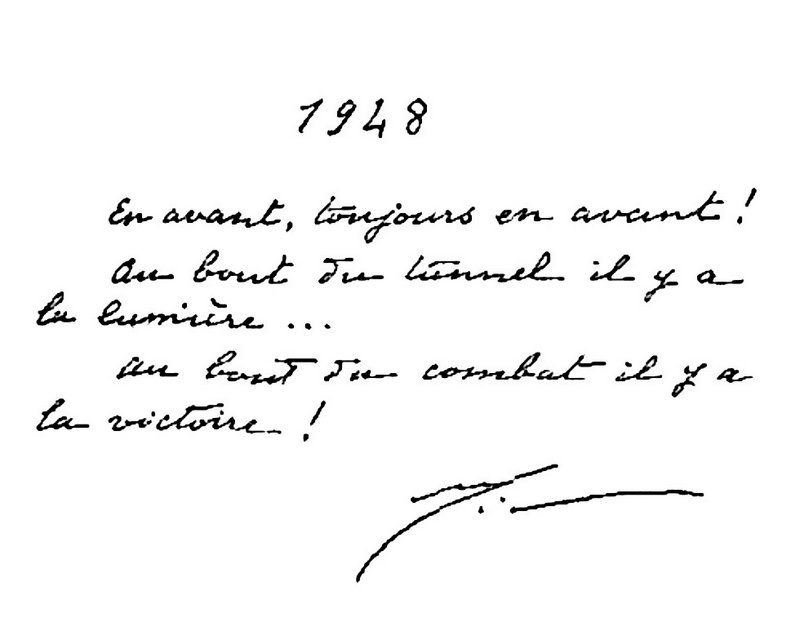 1948
En avant, toujours en avant !
Au bout du tunnel il y a
la lumière ...
Au bout du combat il y a
la victoire !